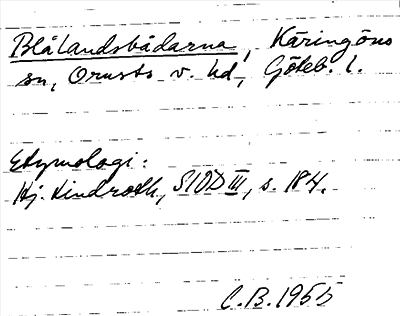 Blålandsbådarna, Käringöns
sn, Orusts v. hd, Göteb. l.
Etymologi:
Hj. Lindroth, SIOD III, s. 184.
C.B. 1955